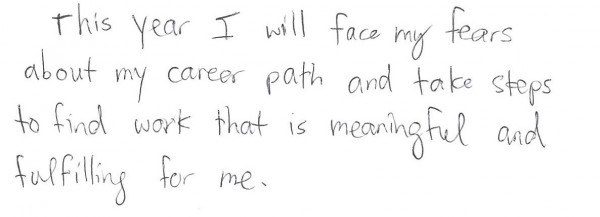 This year I will face my fears
about my career path and take steps
to find work that is meaningful and
fulfilling for me.